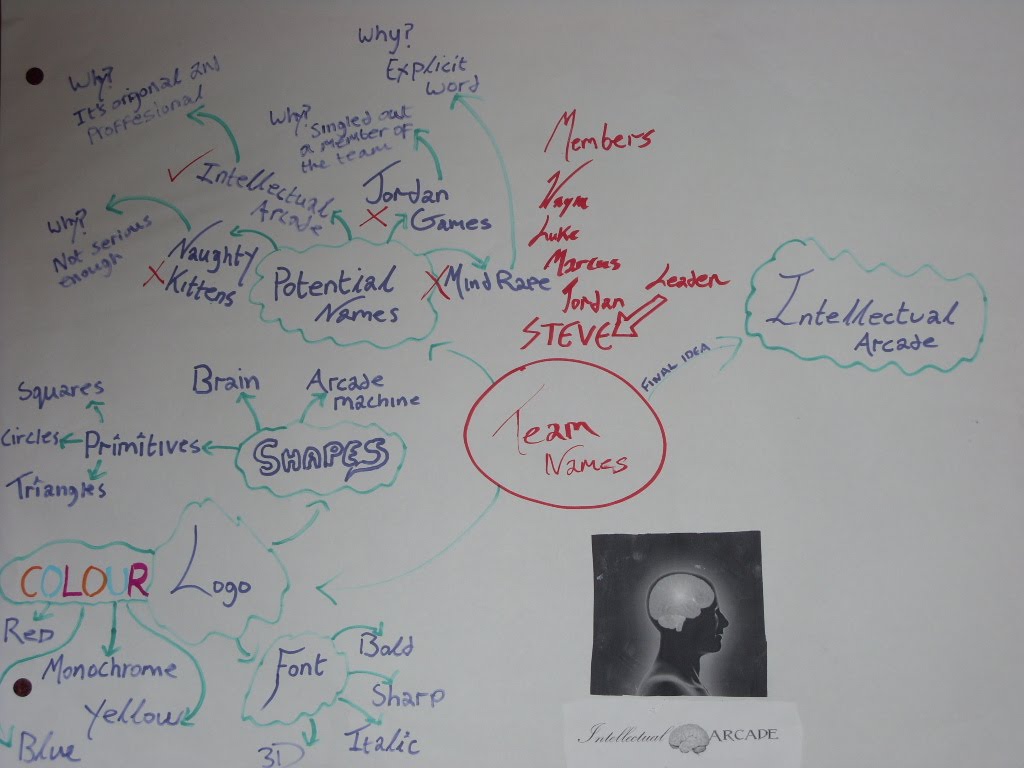 Why?
Explicit
Word
Why?
It's original and
Proffesional
Why?
Singled out
a member of
the team
Members
Intellectual
Arcade
Jordan
Games
Why?
Not serious
enough
Naughty
Kittens
Potential
Names
Mind Rape
Luke
Marcus
Jordan
STEVE
Leader
FINAL IDEA
Intellectual
Arcade
Team
Names
Squares
Circles
Primitives
Triangles
Brain
Arcade
machine
SHAPES
COLOUR
Logo
Red
Monochrome
Yellow
Blue
Font
Bold
Sharp
Italic
3D
Intellectual ARCADE